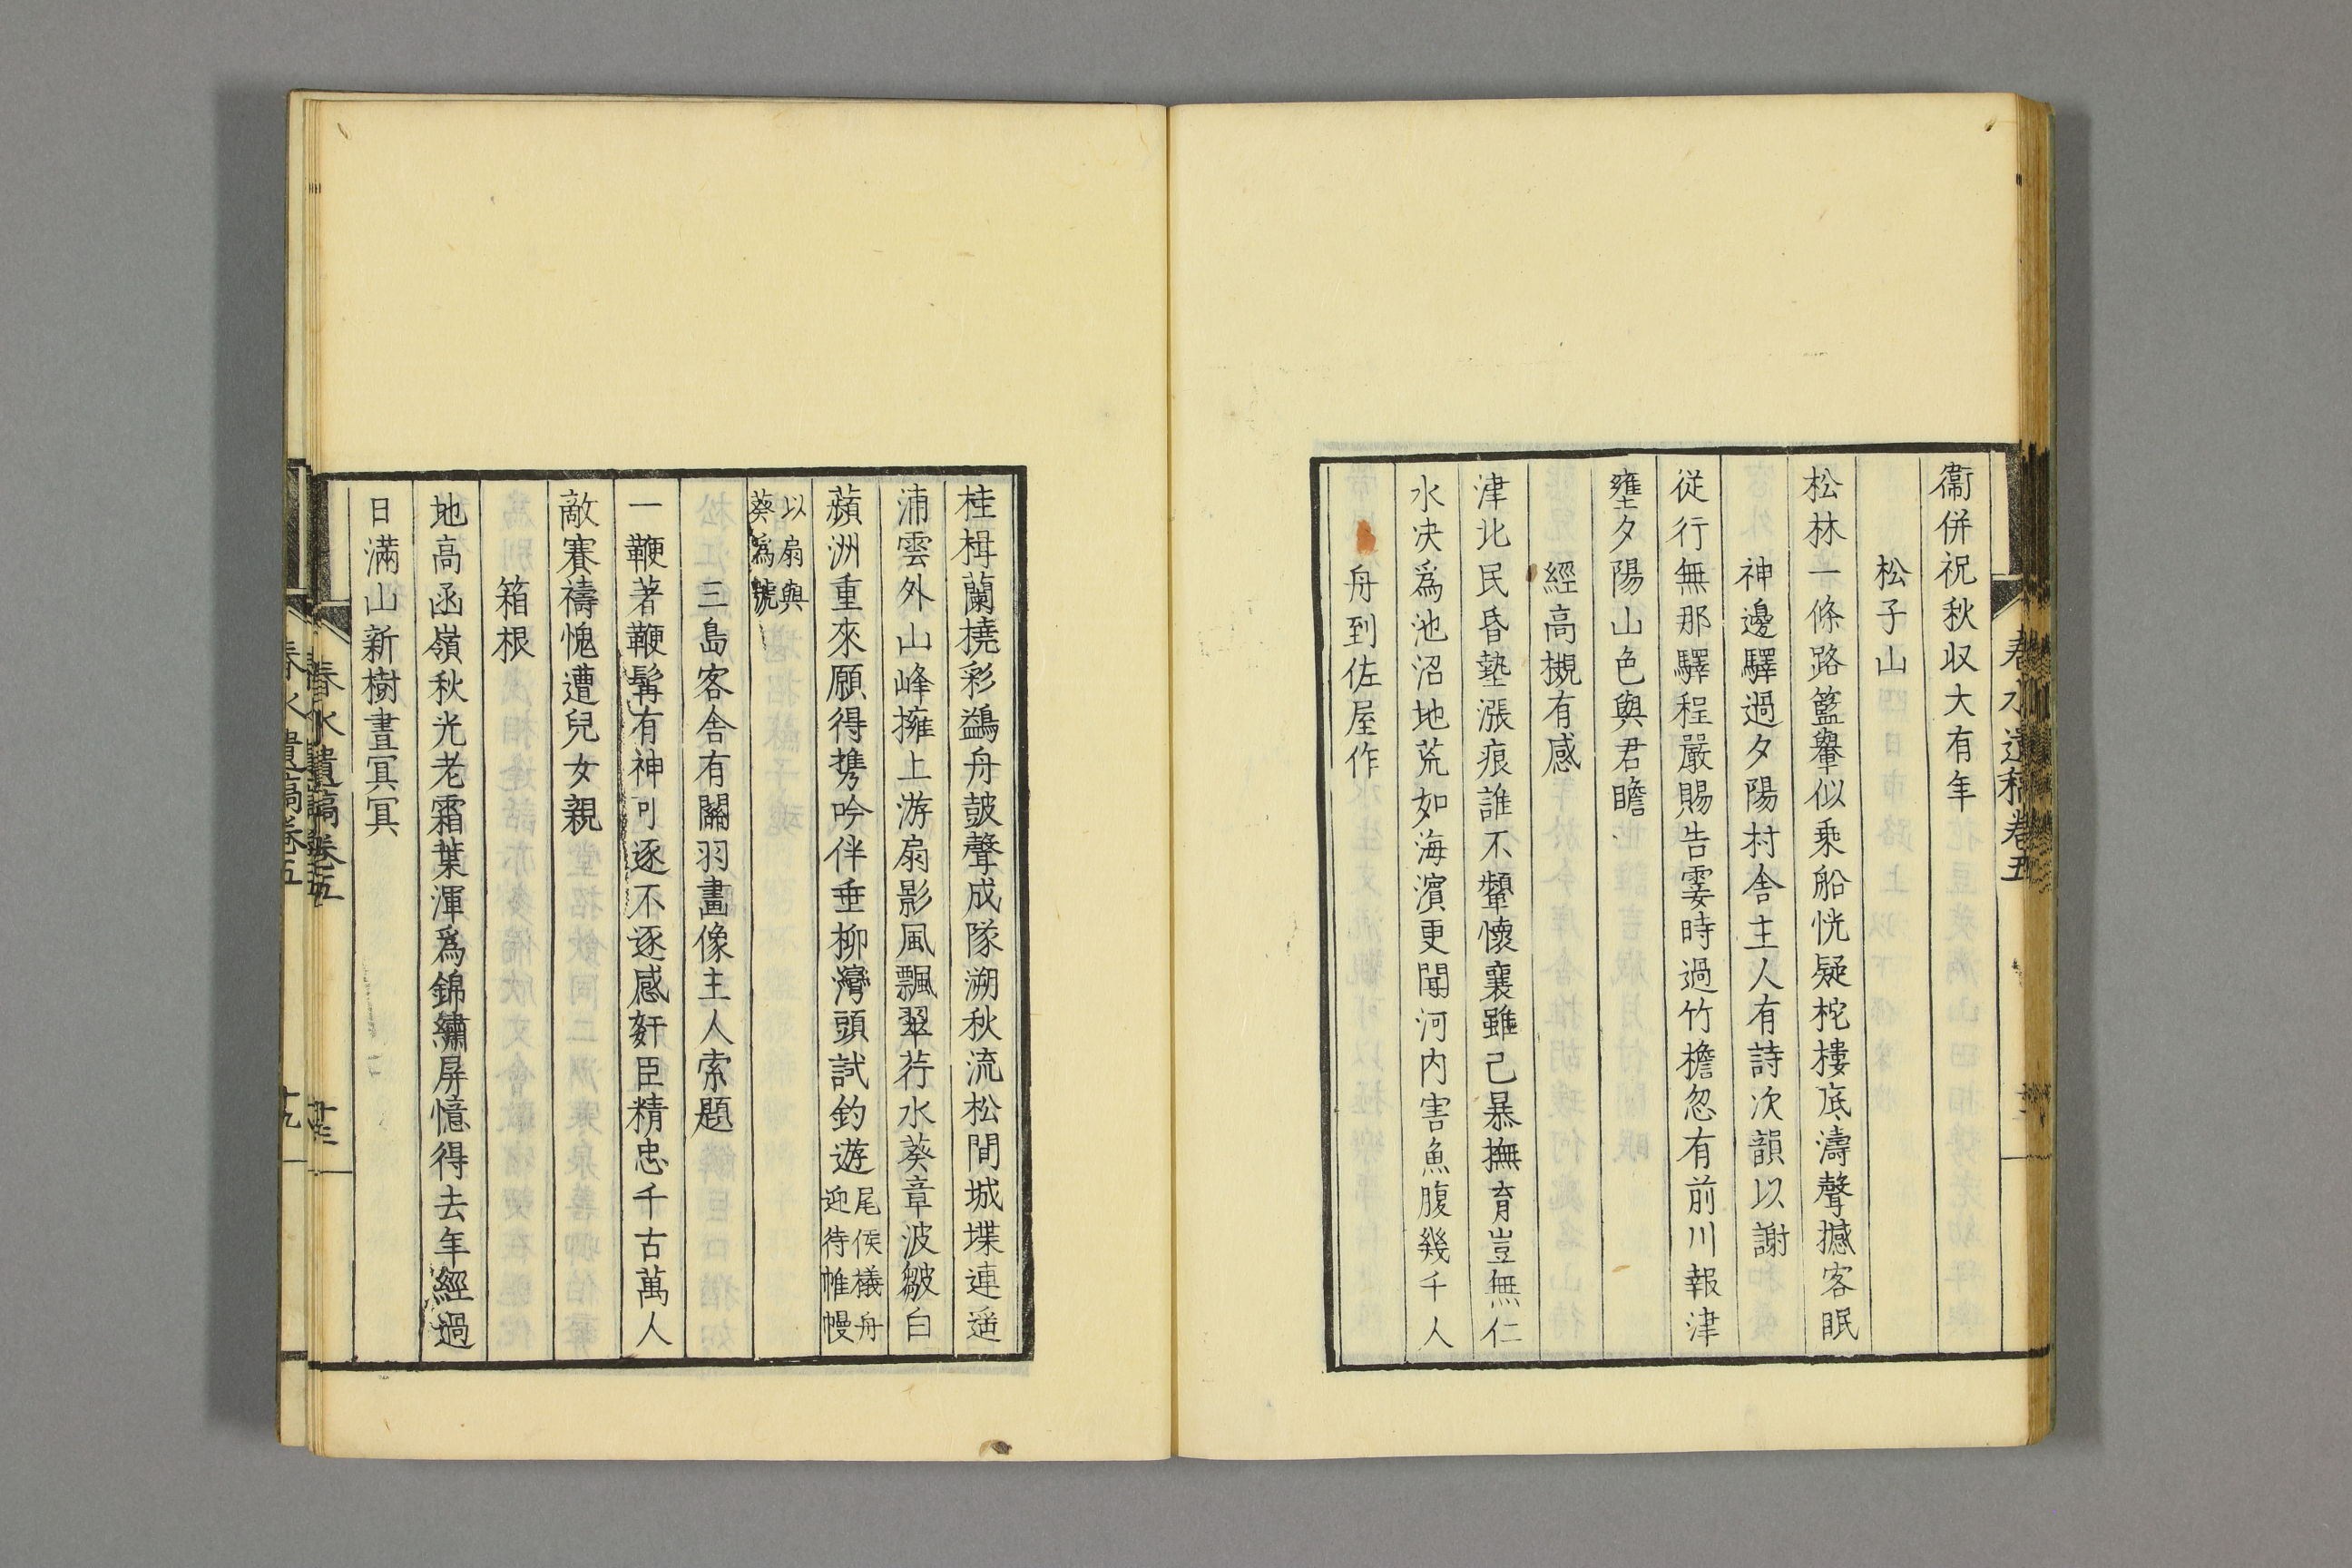 衞併祝秋収大有年
松子山
松林一條路籃轝似乘船恍疑柁樓底濤聲撼客眠
神邊驛過夕陽村舍主人有詩次韻以謝
従行無那驛程嚴賜告霎時過竹檐忽有前川報津
壅夕陽山色與君瞻
經高槻有感
津北民昏墊漲痕誰不顰懷襄雖已暴撫育豈無仁
水决爲池沼地荒如海濱更聞河内害魚腹幾千人
舟到佐屋作
桂楫蘭橈彩鷁舟鼓聲成隊溯秋流松間城堞連遥
浦雲外山峰擁上游扇影風飄翠荇水葵章波皺白
蘋洲重來願得携吟伴垂柳灣頭試釣遊
尾侯檥舟
迎待帷幔
以扇與
葵爲號
三島客舍有關羽畫像主人索題
一鞭著鞭髯有神可逐不逐感奸臣精忠千古萬人
敵賽禱愧遭兒女親
箱根
地高函嶺秋光老霜葉渾爲錦繡屏憶得去年經過
日滿山新樹晝冥冥
春水遺稿卷五
春水遺稿卷五
春水遺稿卷五